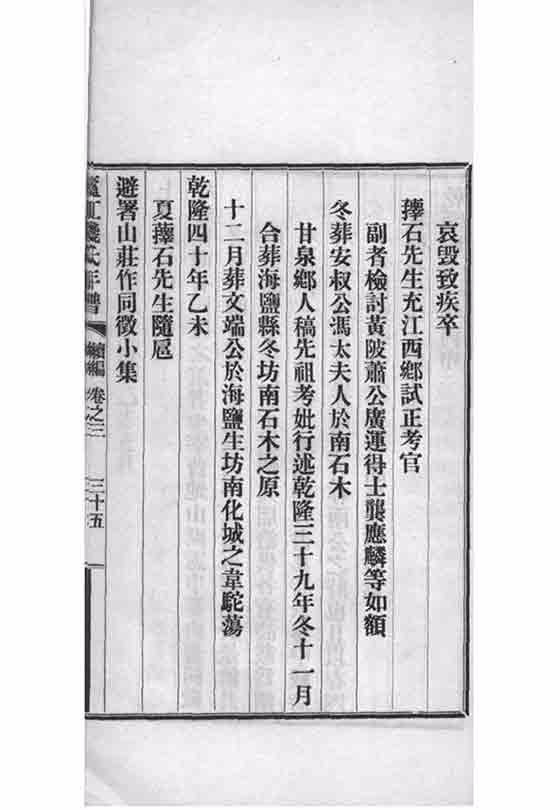 哀毀致疾卒
蘀石先生充江西鄉試正考官
副者檢討黃陂蕭公廣運得士龔應麟等如額
冬葬安叔公馮太夫人於南石木
甘泉鄉人稿先祖考妣行述乾隆三十九年冬十一月
合葬海鹽縣冬坊南石木之原
十二月葬文端公於海鹽生坊南化城之韋駝蕩
乾隆四十年乙未
夏蘀石先生隨扈
避署山莊作同徵小集
氏年譜
續編
卷之三
三十五